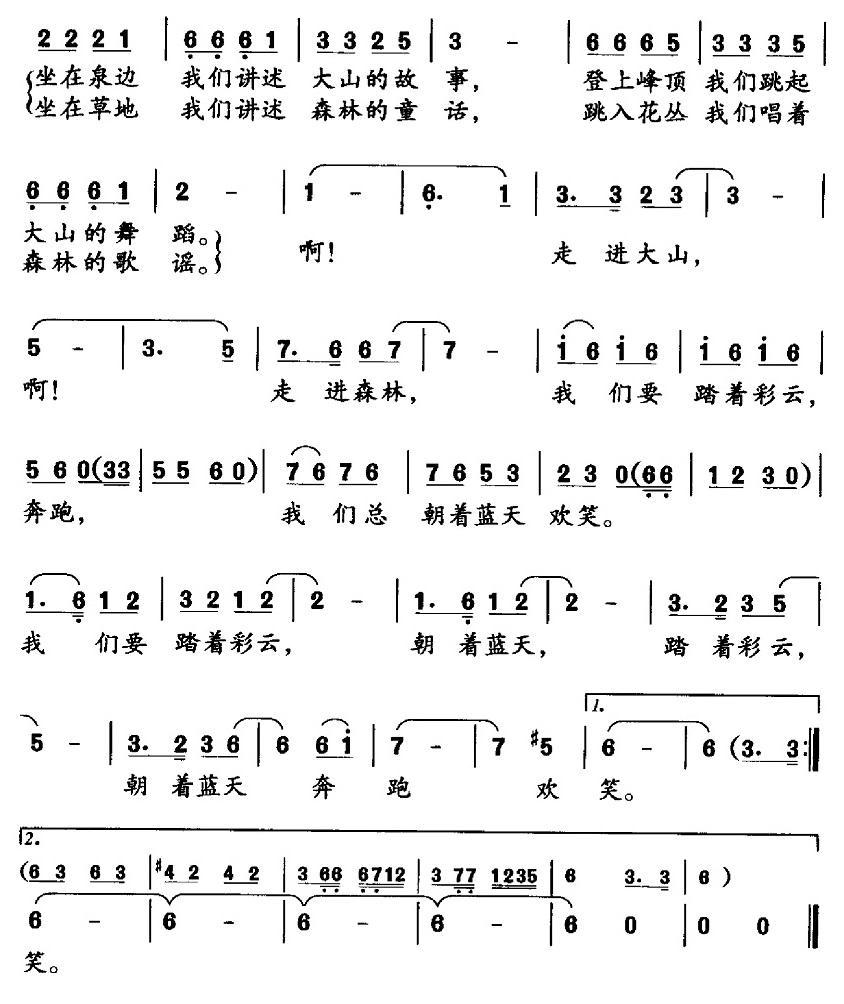 2 2 2 1 | 6 6 6 1 | 3 3 2 5 | 3 - | 6 6 6 5 | 3 3 3 5 |
坐在泉边 我们讲述 大山的故 事, 登上峰顶 我们跳起
坐在草地 我们讲述 森林的童 话, 跳入花丛 我们唱着
6 6 6 1 | 2 - | 1 - | 6. 1 | 3. 3 2 3 | 3 - |
大山的舞 蹈。 啊! 走 进大山,
森林的歌 谣。
5 - | 3. 5 | 7. 6 6 7 | 7 - | i 6 i 6 | i 6 i 6 |
啊! 走 进森林, 我 们要 踏着彩云,
5 6 0(33 | 5 5 6 0) | 7 6 7 6 | 7 6 5 3 | 2 3 0(66 | 1 2 3 0) |
奔跑, 我 们总 朝着蓝天 欢笑。
1. 6 1 2 | 3 2 1 2 | 2 - | 1. 6 1 2 | 2 - | 3. 2 3 5 |
我 们要 踏着彩云, 朝 着蓝天, 踏 着彩云,
1.
5 - | 3. 2 3 6 | 6 6 i | 7 - | 7 #5 | 6 - | 6 (3. 3 :||
朝 着蓝天 奔 跑 欢 笑。
2.
(6 3 6 3 | #4 2 4 2 | 3 66 6712 | 3 77 1235 | 6 3. 3 | 6 )
6 - | 6 - | 6 - | 6 - | 6 0 | 0 0 |
笑。